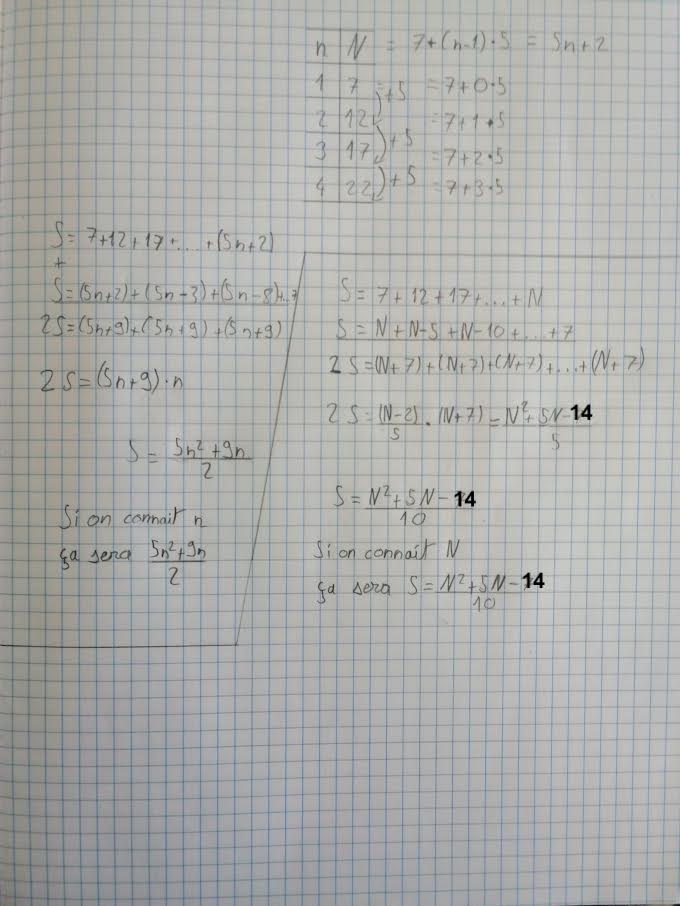 n N = 7+(n-1)·5 = 5n+2
1 7 = 7+0·5
+5
2 12 = 7+1·5
+5
3 17 = 7+2·5
+5
4 22 = 7+3·5
S= 7+12+17+...+(5n+2)
+
S=(5n+2)+(5n-3)+(5n-8)+..7
2S=(5n+9)+(5n+9)+(5n+9)
2S=(5n+9)·n
S= 5n²+9n
2
Si on connait n
ça sera 5n²+9n
2
S= 7+12+17+...+N
S= N+N-5+N-10+...+7
2S=(N+7)+(N+7)+(N+7)+...+(N+7)
2S=(N-2)·(N+7)=N²+5N-14
5 5
S=N²+5N-14
10
Si on connaît N
ça sera S=N²+5N-14
10